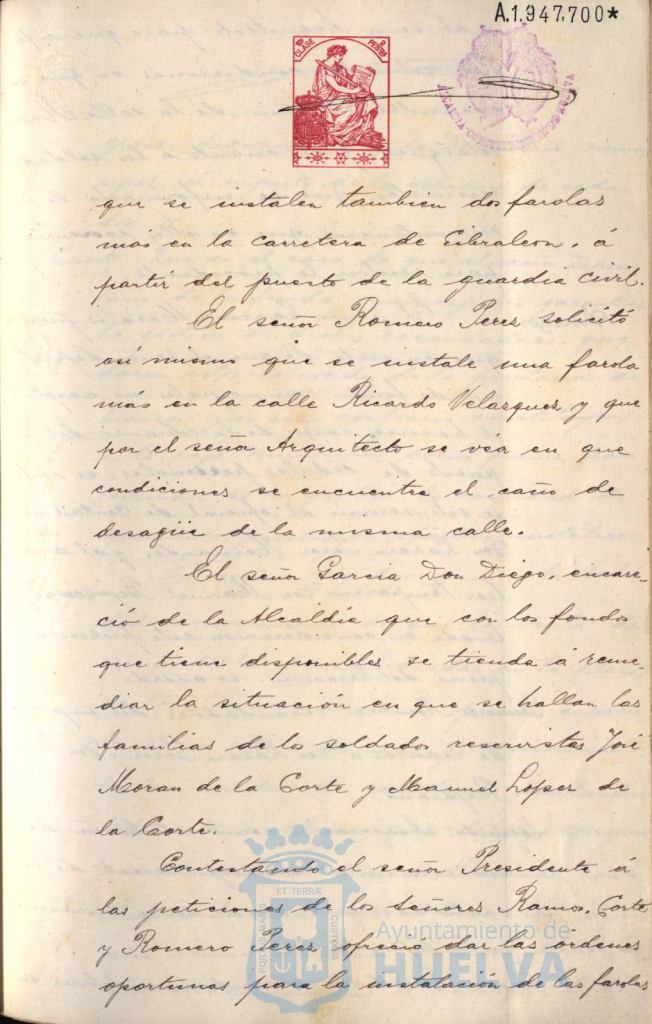 A.1.947,700*
10ª CLASE
2 PESTAS
que se instalen tambien dos farolas
más en la carretera de Gibraleon, á
partir del puesto de la guardia civil.
El señor Romero Perez solicitó
asi mismo que se instale una farola
más en la calle Ricardo Velazquez y que
por el señor Arquitecto se vea en que
condiciones se encuentra el caño de
desagüe de la misma calle.
El señor Garcia Don Diego, encare-
ció de la Alcaldía que con los fondos
que tiene disponibles se tienda á reme-
diar la situación en que se hallan las
familias de los soldados reservistas José
Moran de la Corte y Manuel Lopez de
la Corte.
Contestando el señor Presidente á
las peticiones de los señores Ramos, Corte
y Romero Perez, ofreció dar las órdenes
oportunas para la instalación de las farolas
ET TERRÆ
PORTUS MARIS
CUSTODIA
Ayuntamiento de
HUELVA